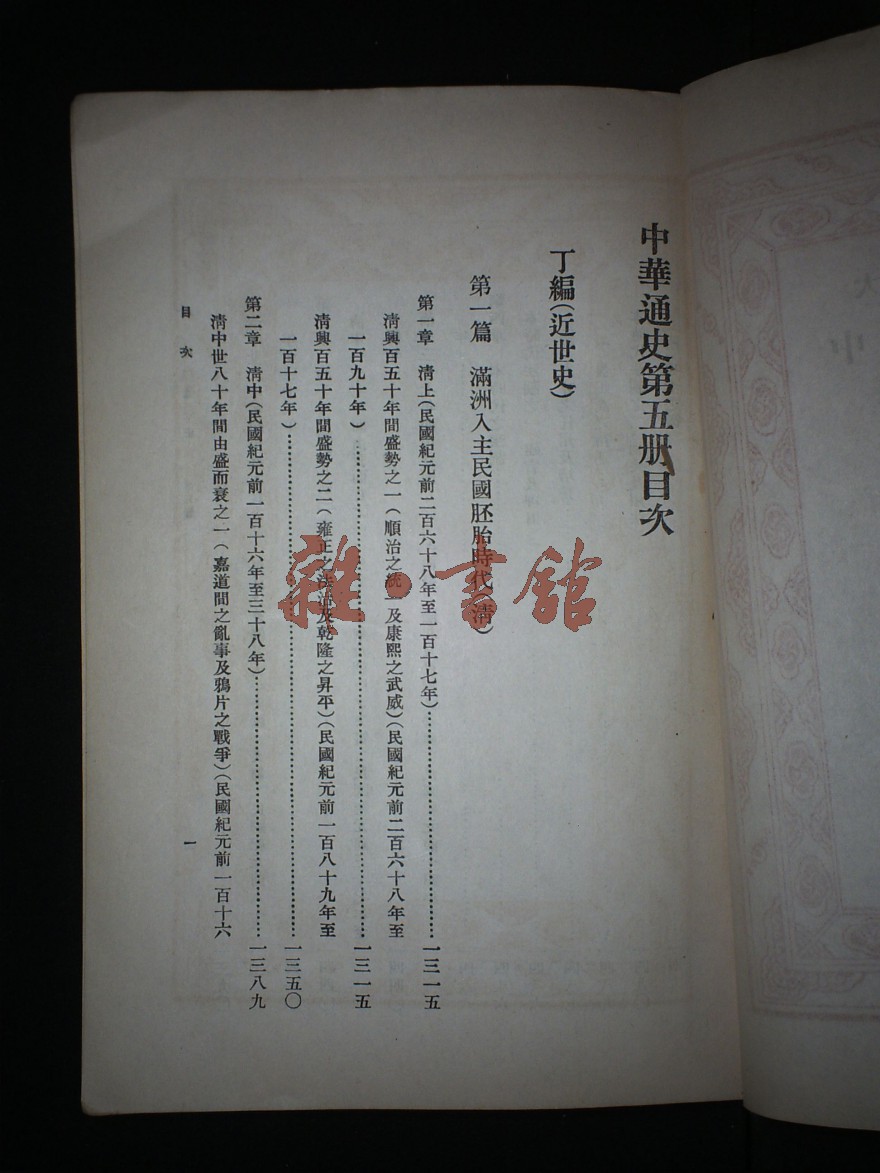 中華通史第五册目次
丁編(近世史)
第一篇　滿洲入主民國胚胎時代(清)
第一章　清上(民國紀元前二百六十八年至一百十七年)…………一三一五
清興百五十年間盛勢之一(順治之統一及康熙之武威)(民國紀元前二百六十八年至
一百九十年)…………一三一五
清興百五十年間盛勢之二(雍正之法治及乾隆之昇平)(民國紀元前一百八十九年至
一百十七年)…………一三五〇
第二章　清中(民國紀元前一百十六年至三十八年)…………一三八九
清中世八十年間由盛而衰之一(嘉道間之亂事及鴉片之戰爭)(民國紀元前一百十六
目次　一
雜·書館